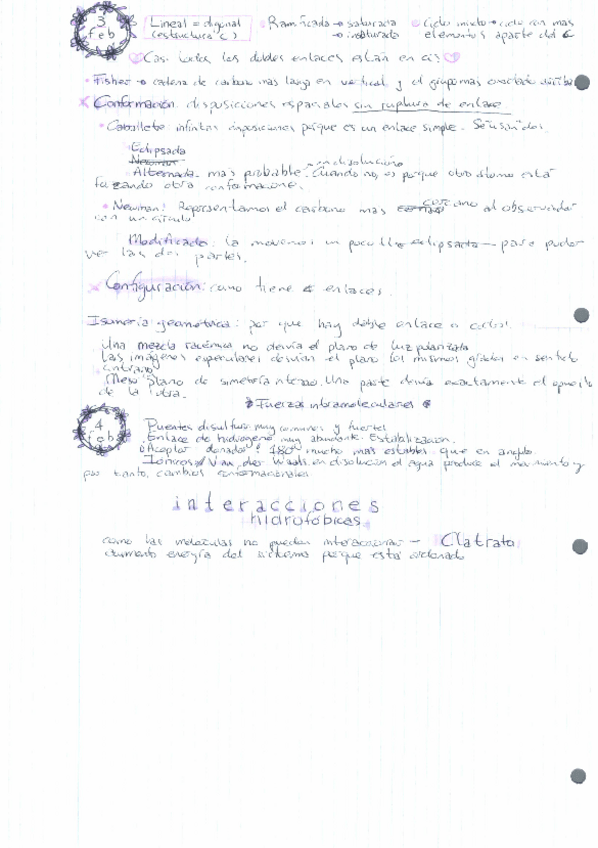 3 Feb
Lineal = digonal (estructura C)
Ramificada → saturada
→ insaturada
Ciclo mixto → ciclo con más elementos aparte del C
Cas: todos los dobles enlaces están en cis
Fisher → cadena de carbono más larga en vertical y el grupo más oxidado arriba
Conformación: disposiciones espaciales sin ruptura de enlace
Caballete: infinitas disposiciones porque es un enlace simple.
Eclipsada
Newman
Alternada más probable en disolución. Cuando no, es porque otro átomo está
forzando otra conformación.
Newman: Representamos el carbono más cercano al observador
con un círculo
Modificada: la movemos un poco la eclipsada — para poder
ver las dos partes.
Configuración: como tiene enlaces.
Isomería geométrica: por que hay doble enlace o ciclos.
Una mezcla racémica no desvía el plano de luz polarizada
Las imágenes especulares desvían el plano los mismos grados en sentido
contrario
Meso: plano de simetría interno. Una parte desvía exactamente el opuesto
de la otra.
Fuerzas intramoleculares
4 feb
Puentes disulfuro muy comunes y fuertes
Enlace de hidrógeno muy abundante. Estabilización.
Aceptor donador: 180° mucho más estables que en ángulo.
Iónicos / Van der Waals en disolución el agua produce el movimiento y
por tanto, cambios conformacionales
interacciones
hidrofóbicas
como las moléculas no pueden interaccionar — Clatrato
aumento energía del sistema porque está ordenado